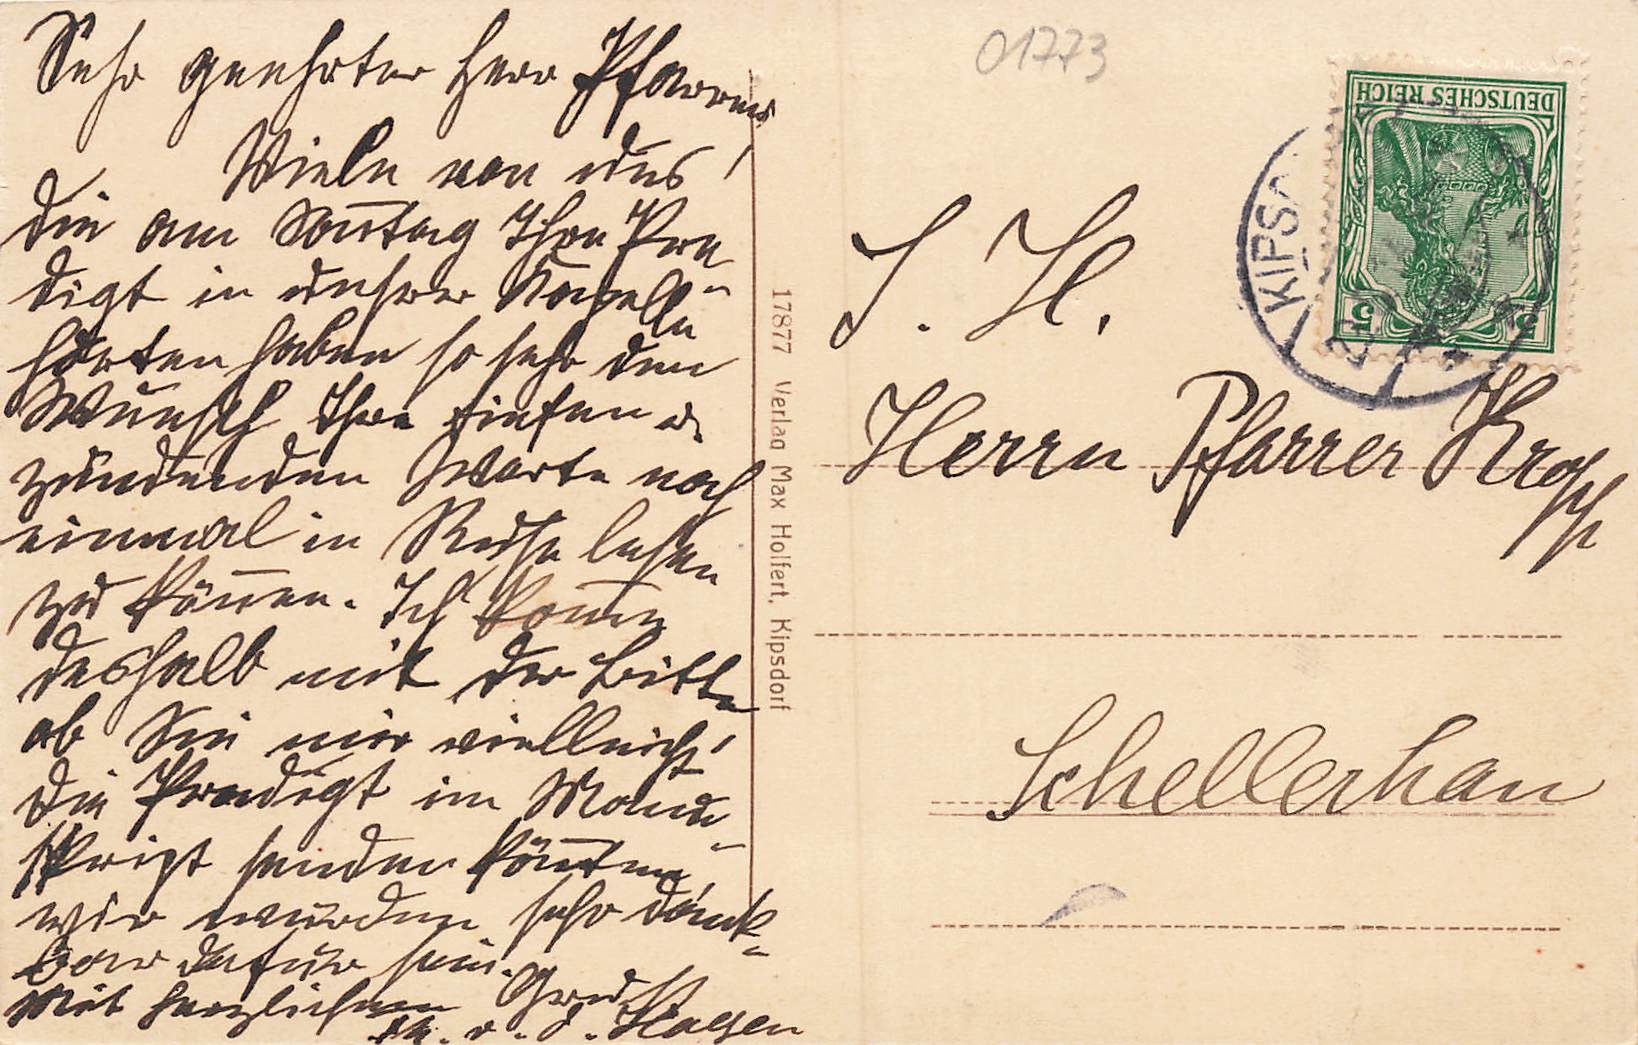 Sehr geehrter Herr Pfarrer
Viele von uns,
die am Sonntag Ihre Pre
digt in unsrer Kapelle
hörten haben so sehr den
Wunsch Ihre tiefen u.
zündenden Worte noch
einmal in Ruhe lesen
zu können. Ich komme
deshalb mit der Bitte
ob Sie mir vielleicht
die Predigt im Manu-
skript senden könnten,
wir würden sehr dank-
bar dafür sein.
Mit herzlichem Gruß
M. v. d. Hagen
17877 Verlag Max Holfert, Kipsdorf
01773
DEUTSCHES REICH
5 5
KIPSD
S. H.
Herrn Pfarrer Kropp
Schellerhau